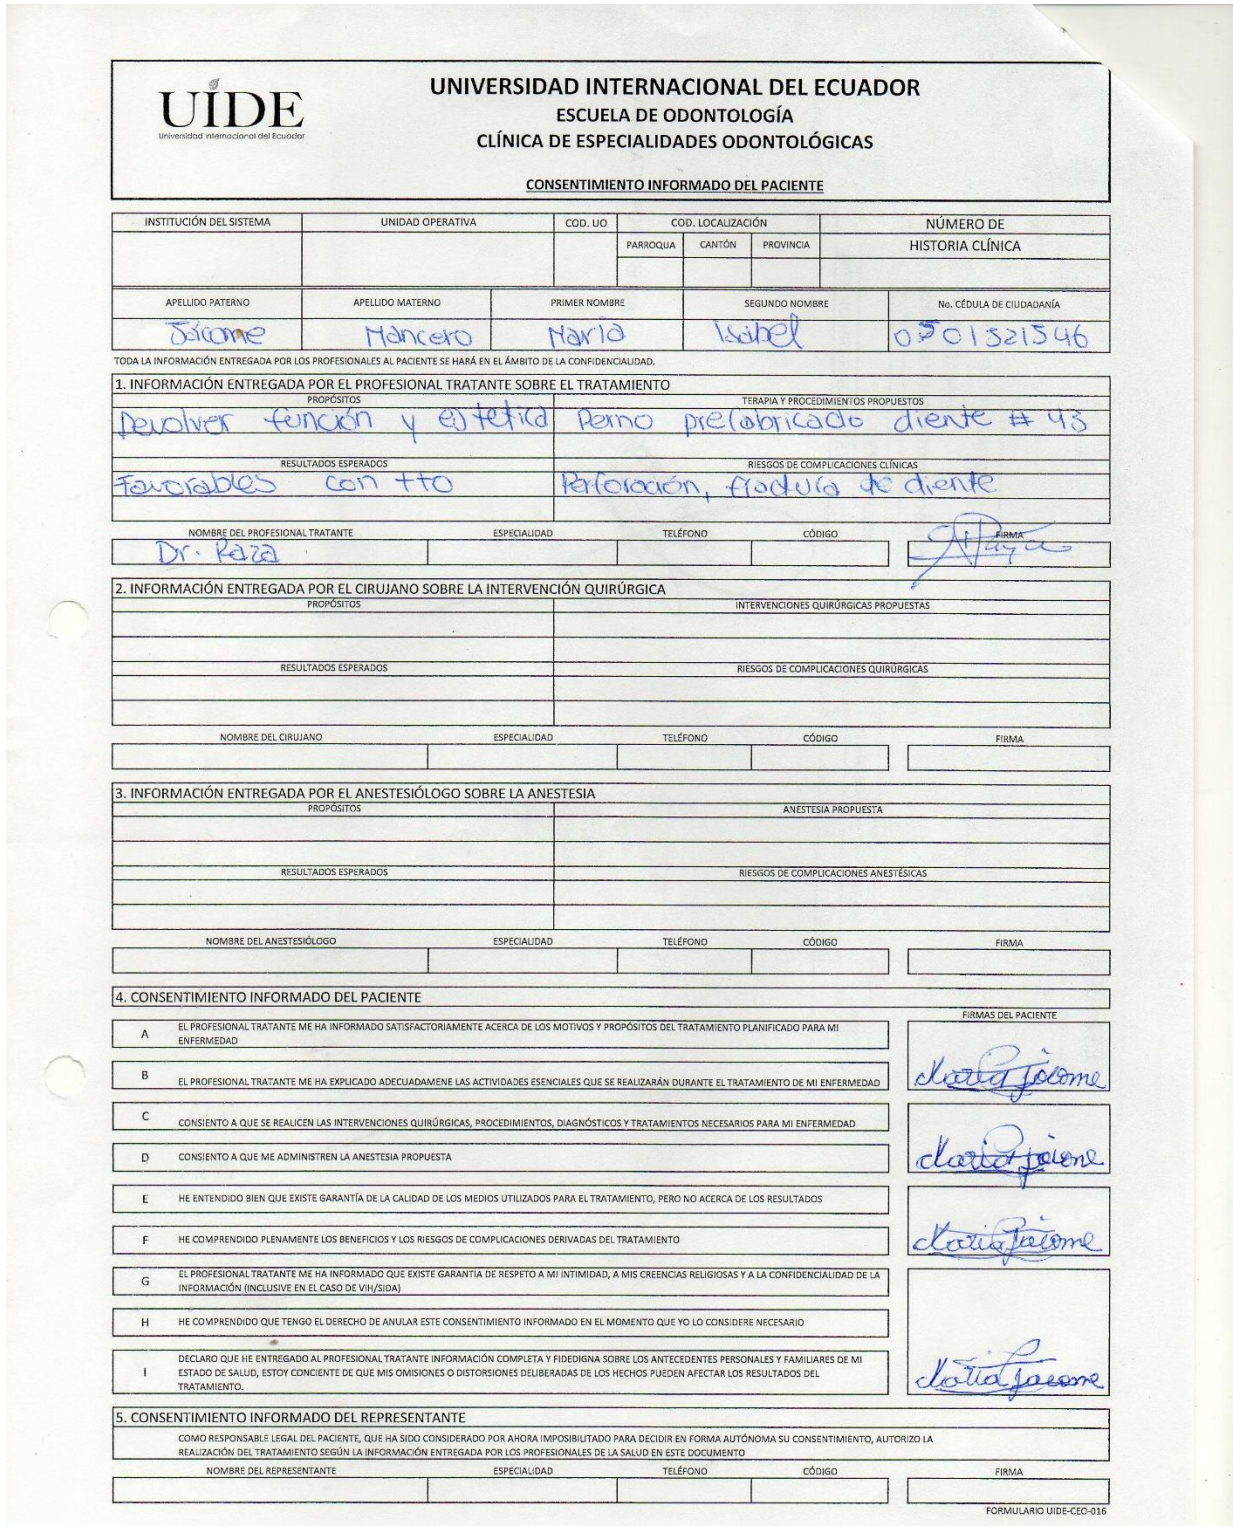 UIDE
Universidad Internacional del Ecuador
UNIVERSIDAD INTERNACIONAL DEL ECUADOR
ESCUELA DE ODONTOLOGÍA
CLÍNICA DE ESPECIALIDADES ODONTOLÓGICAS
CONSENTIMIENTO INFORMADO DEL PACIENTE
INSTITUCIÓN DEL SISTEMA UNIDAD OPERATIVA COD. UO COD. LOCALIZACIÓN NÚMERO DE
PARROQUA CANTÓN PROVINCIA HISTORIA CLÍNICA
APELLIDO PATERNO APELLIDO MATERNO PRIMER NOMBRE SEGUNDO NOMBRE No. CÉDULA DE CIUDADANÍA
Jácome Mancero María Isabel 0501521546
TODA LA INFORMACIÓN ENTREGADA POR LOS PROFESIONALES AL PACIENTE SE HARÁ EN EL ÁMBITO DE LA CONFIDENCIALIDAD.
1. INFORMACIÓN ENTREGADA POR EL PROFESIONAL TRATANTE SOBRE EL TRATAMIENTO
PROPÓSITOS TERAPIA Y PROCEDIMIENTOS PROPUESTOS
Devolver función y estetica Perno prefabricado diente # 43
RESULTADOS ESPERADOS RIESGOS DE COMPLICACIONES CLÍNICAS
Favorables con tto Perforación, fractura de diente
NOMBRE DEL PROFESIONAL TRATANTE ESPECIALIDAD TELÉFONO CÓDIGO FIRMA
Dr. Raza
2. INFORMACIÓN ENTREGADA POR EL CIRUJANO SOBRE LA INTERVENCIÓN QUIRÚRGICA
PROPÓSITOS INTERVENCIONES QUIRÚRGICAS PROPUESTAS
RESULTADOS ESPERADOS RIESGOS DE COMPLICACIONES QUIRÚRGICAS
NOMBRE DEL CIRUJANO ESPECIALIDAD TELÉFONO CÓDIGO FIRMA
3. INFORMACIÓN ENTREGADA POR EL ANESTESIÓLOGO SOBRE LA ANESTESIA
PROPÓSITOS ANESTESIA PROPUESTA
RESULTADOS ESPERADOS RIESGOS DE COMPLICACIONES ANESTÉSICAS
NOMBRE DEL ANESTESIÓLOGO ESPECIALIDAD TELÉFONO CÓDIGO FIRMA
4. CONSENTIMIENTO INFORMADO DEL PACIENTE
FIRMAS DEL PACIENTE
A EL PROFESIONAL TRATANTE ME HA INFORMADO SATISFACTORIAMENTE ACERCA DE LOS MOTIVOS Y PROPÓSITOS DEL TRATAMIENTO PLANIFICADO PARA MI
ENFERMEDAD
B EL PROFESIONAL TRATANTE ME HA EXPLICADO ADECUADAMENE LAS ACTIVIDADES ESENCIALES QUE SE REALIZARÁN DURANTE EL TRATAMIENTO DE MI ENFERMEDAD
María Jácome
C CONSIENTO A QUE SE REALICEN LAS INTERVENCIONES QUIRÚRGICAS, PROCEDIMIENTOS, DIAGNÓSTICOS Y TRATAMIENTOS NECESARIOS PARA MI ENFERMEDAD
D CONSIENTO A QUE ME ADMINISTREN LA ANESTESIA PROPUESTA
María Jácome
E HE ENTENDIDO BIEN QUE EXISTE GARANTÍA DE LA CALIDAD DE LOS MEDIOS UTILIZADOS PARA EL TRATAMIENTO, PERO NO ACERCA DE LOS RESULTADOS
F HE COMPRENDIDO PLENAMENTE LOS BENEFICIOS Y LOS RIESGOS DE COMPLICACIONES DERIVADAS DEL TRATAMIENTO
María Jácome
G EL PROFESIONAL TRATANTE ME HA INFORMADO QUE EXISTE GARANTIA DE RESPETO A MI INTIMIDAD, A MIS CREENCIAS RELIGIOSAS Y A LA CONFIDENCIALIDAD DE LA
INFORMACIÓN (INCLUSIVE EN EL CASO DE VIH/SIDA)
H HE COMPRENDIDO QUE TENGO EL DERECHO DE ANULAR ESTE CONSENTIMIENTO INFORMADO EN EL MOMENTO QUE YO LO CONSIDERE NECESARIO
I DECLARO QUE HE ENTREGADO AL PROFESIONAL TRATANTE INFORMACIÓN COMPLETA Y FIDEDIGNA SOBRE LOS ANTECEDENTES PERSONALES Y FAMILIARES DE MI
ESTADO DE SALUD, ESTOY CONCIENTE DE QUE MIS OMISIONES O DISTORSIONES DELIBERADAS DE LOS HECHOS PUEDEN AFECTAR LOS RESULTADOS DEL
TRATAMIENTO.
María Jácome
5. CONSENTIMIENTO INFORMADO DEL REPRESENTANTE
COMO RESPONSABLE LEGAL DEL PACIENTE, QUE HA SIDO CONSIDERADO POR AHORA IMPOSIBILITADO PARA DECIDIR EN FORMA AUTÓNOMA SU CONSENTIMIENTO, AUTORIZO LA
REALIZACIÓN DEL TRATAMIENTO SEGÚN LA INFORMACIÓN ENTREGADA POR LOS PROFESIONALES DE LA SALUD EN ESTE DOCUMENTO
NOMBRE DEL REPRESENTANTE ESPECIALIDAD TELÉFONO CÓDIGO FIRMA
FORMULARIO UIDE-CEO-016